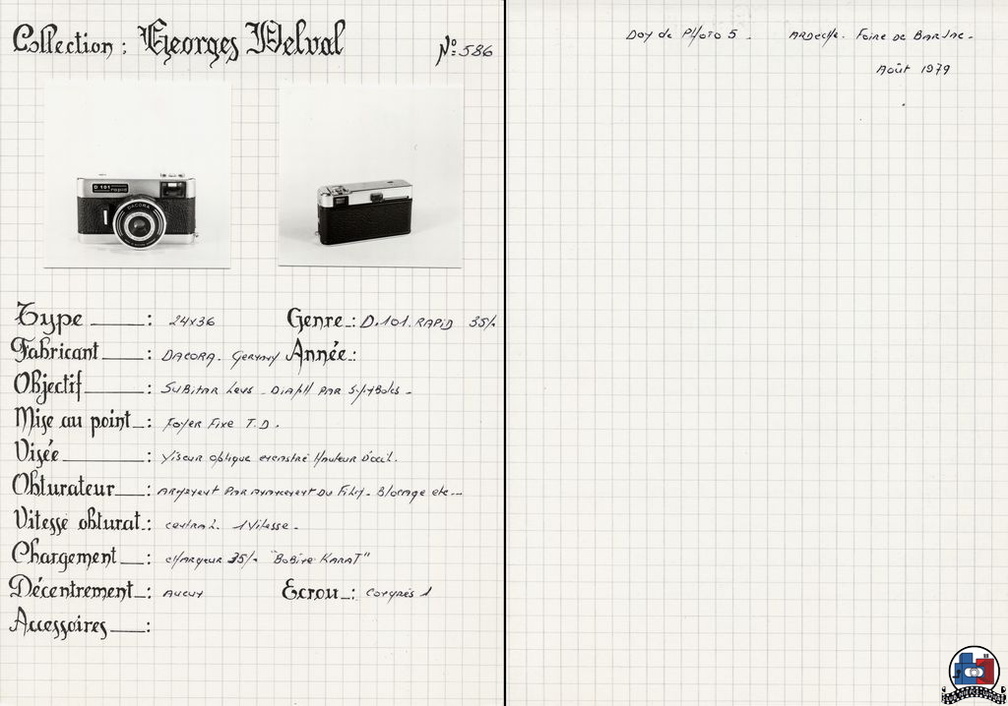 Collection : Georges Delval
N°: 586
D 101 rapid
DACORA
Type : 24x36
Genre : D.101. RAPID 35/.
Fabricant : DACORA. Germany
Année :
Objectif : SUBITAR Lens - DiAPH PAR SyMBOLES -
Mise au point : Foyer Fixe T.D.
Visée : Viseur optique excentré Hauteur D'oeil.
Obturateur : ARMEMENT PAR AVANCEMENT DU FILM - Blocage etc...
Vitesse obturat. : central. 1 Vitesse -
Chargement : CHARGEUR 35/. "BoBiNe KARAT"
Décentrement : AUCUN
Ecrou : Congrès 1
Accessoires :
Doy de PHOTO 5 - ARDECHE. Foire de BARJAC -
Août 1979